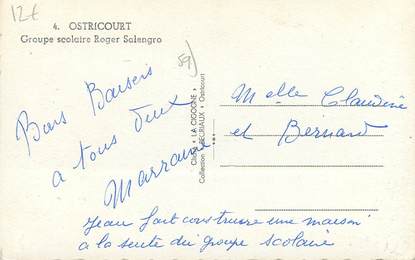 12€
4. OSTRICOURT
Groupe scolaire Roger Salengro
59
Bons Baisers
a tous deux
Marraine
Cliché • LA CIGOGNE •
Collection BECRIAUX • Ostricourt
Melle Claudine
et Bernard
Jean fait construire une maison
à la suite du groupe scolaire